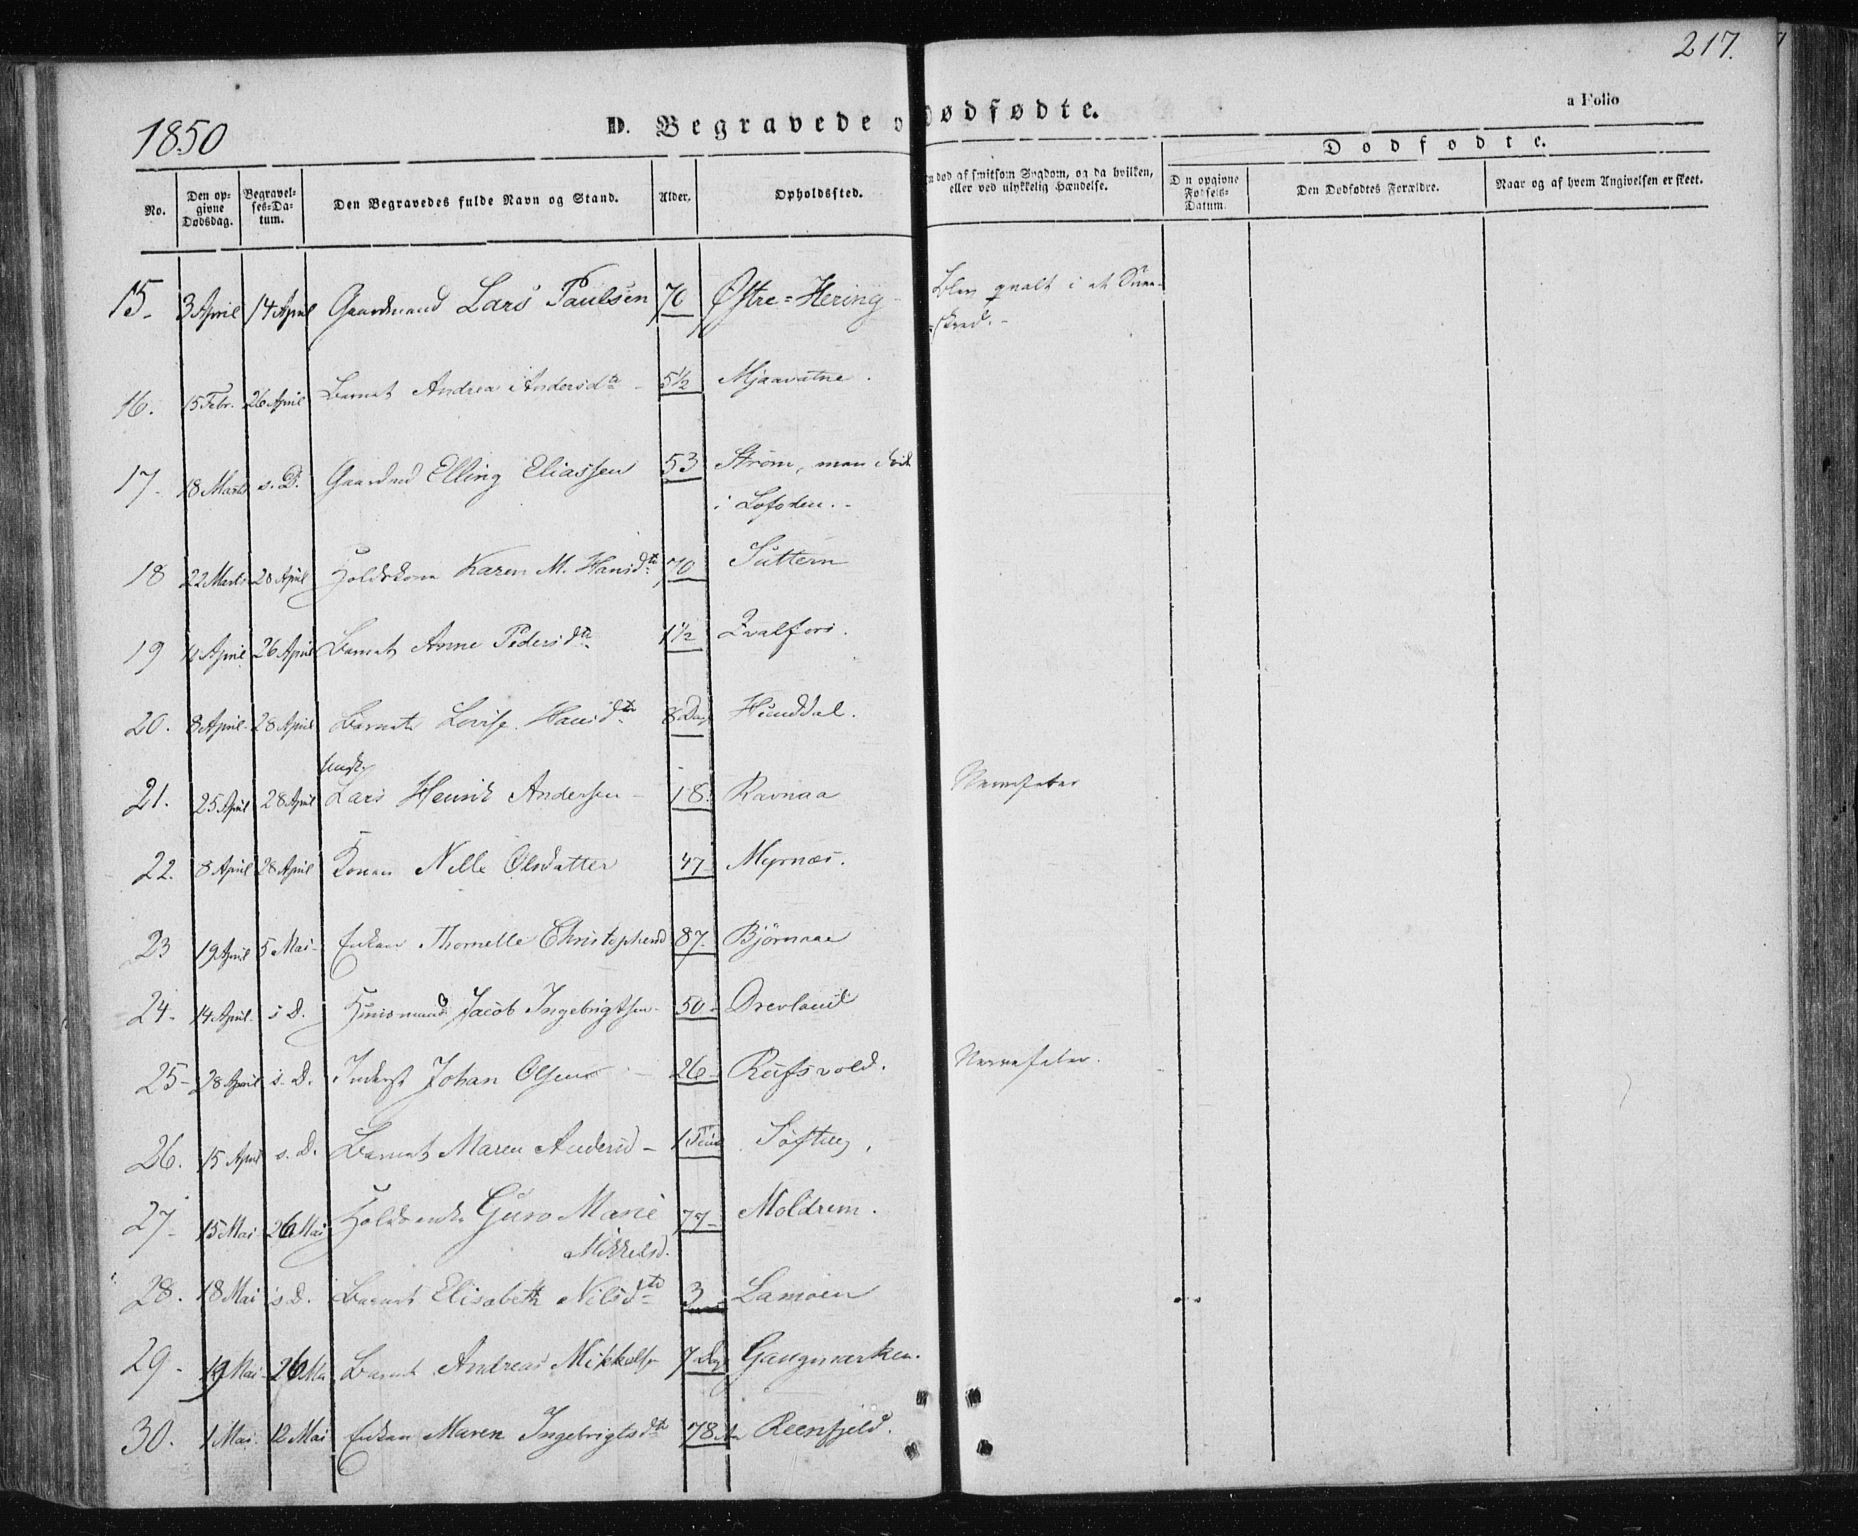 217.
1850
D. Begravede o dødfødte.
a Folio
No.
Den opgivne Dødsdag.
Begravelses-Datum.
Den Begravedes fulde Navn og Stand.
Alder.
Opholdssted.
død af smitsom Sygdom, og da hvilken, eller ved ulykkelig Hændelse.
Dødfødte.
Den opgivne Fødsels-Datum.
Den Dødfødtes Forældre.
Naar og af hvem Angivelsen er skeet.
15. 3 April 14 April Gaardmand Lars Paulsen 70 Østre-Hering Blev qvalt i et Snee-
skred.
16. 15 Febr. 26 April Barnet Andrea Andersdtr 5½ Mjaavatne.
17. 18 Marts s. D. Gaardmd Elling Eliassen 53 Strøm, men døde
i Lofoden.
18 22 Marts 28 April Holdskone Karen M. Hansdtr 70 Suttern
19 4 April 26 April Barnet Anne Pedersdtr 1½ Qvalfors.
20. 8 April 28 April Barnet Lovise Hansdtr 8 Dage Hunddal.
21. 25 April 28 April Ungk. Lars Henrik Andersen 18 Ravnaa Nervefeber
22. 8 April 28 April Konen Nille Olsdatter 47 Myrnæs.
23 19 April 5 Mai Enken Thornelle Christophersd 87. Björnaae
24 14 April s D. Huusmand Jacob Ingebrigtsen 50 Drevland
25 28 April s. D. Inderst Johan Olsen 26 Rufsvold. Nervefeber.
26. 15 April s. D. Barnet Maren Andersd 1 Softing.
27 15 Mai 26 Mai Holdsenke Guro Marie 77 Moldrem.
Mikkelsd.
28. 18 Mai s D. Barnet Elisabeth Nilsdtr 3 Lamoen
29 19 Mai 26 Mai Barnet Andreas Mikkelsen 7 Dage Gangmarken.
30. 1 Mai 12 Mai Enken Maren Ingebrigtsdtr 78 Reenfjeld.